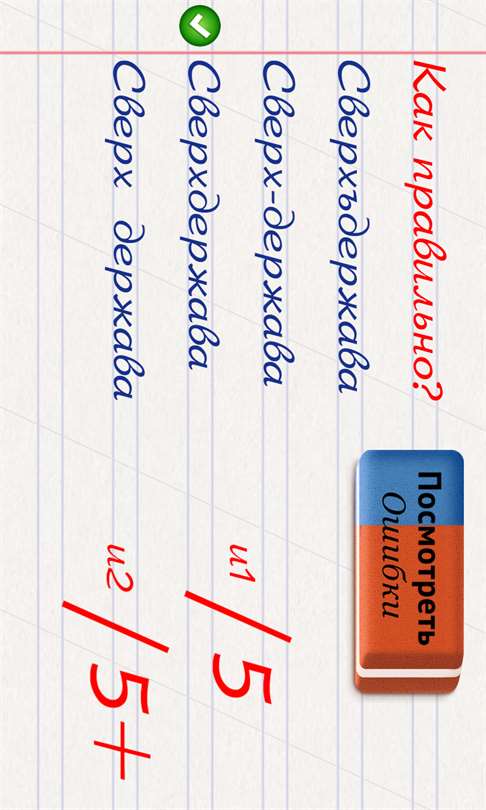 Как правильно?
Сверхъдержава
Сверх-держава
Сверхдержава
Сверх держава
Посмотреть
Ошибки
и1 / 5
и2 / 5+